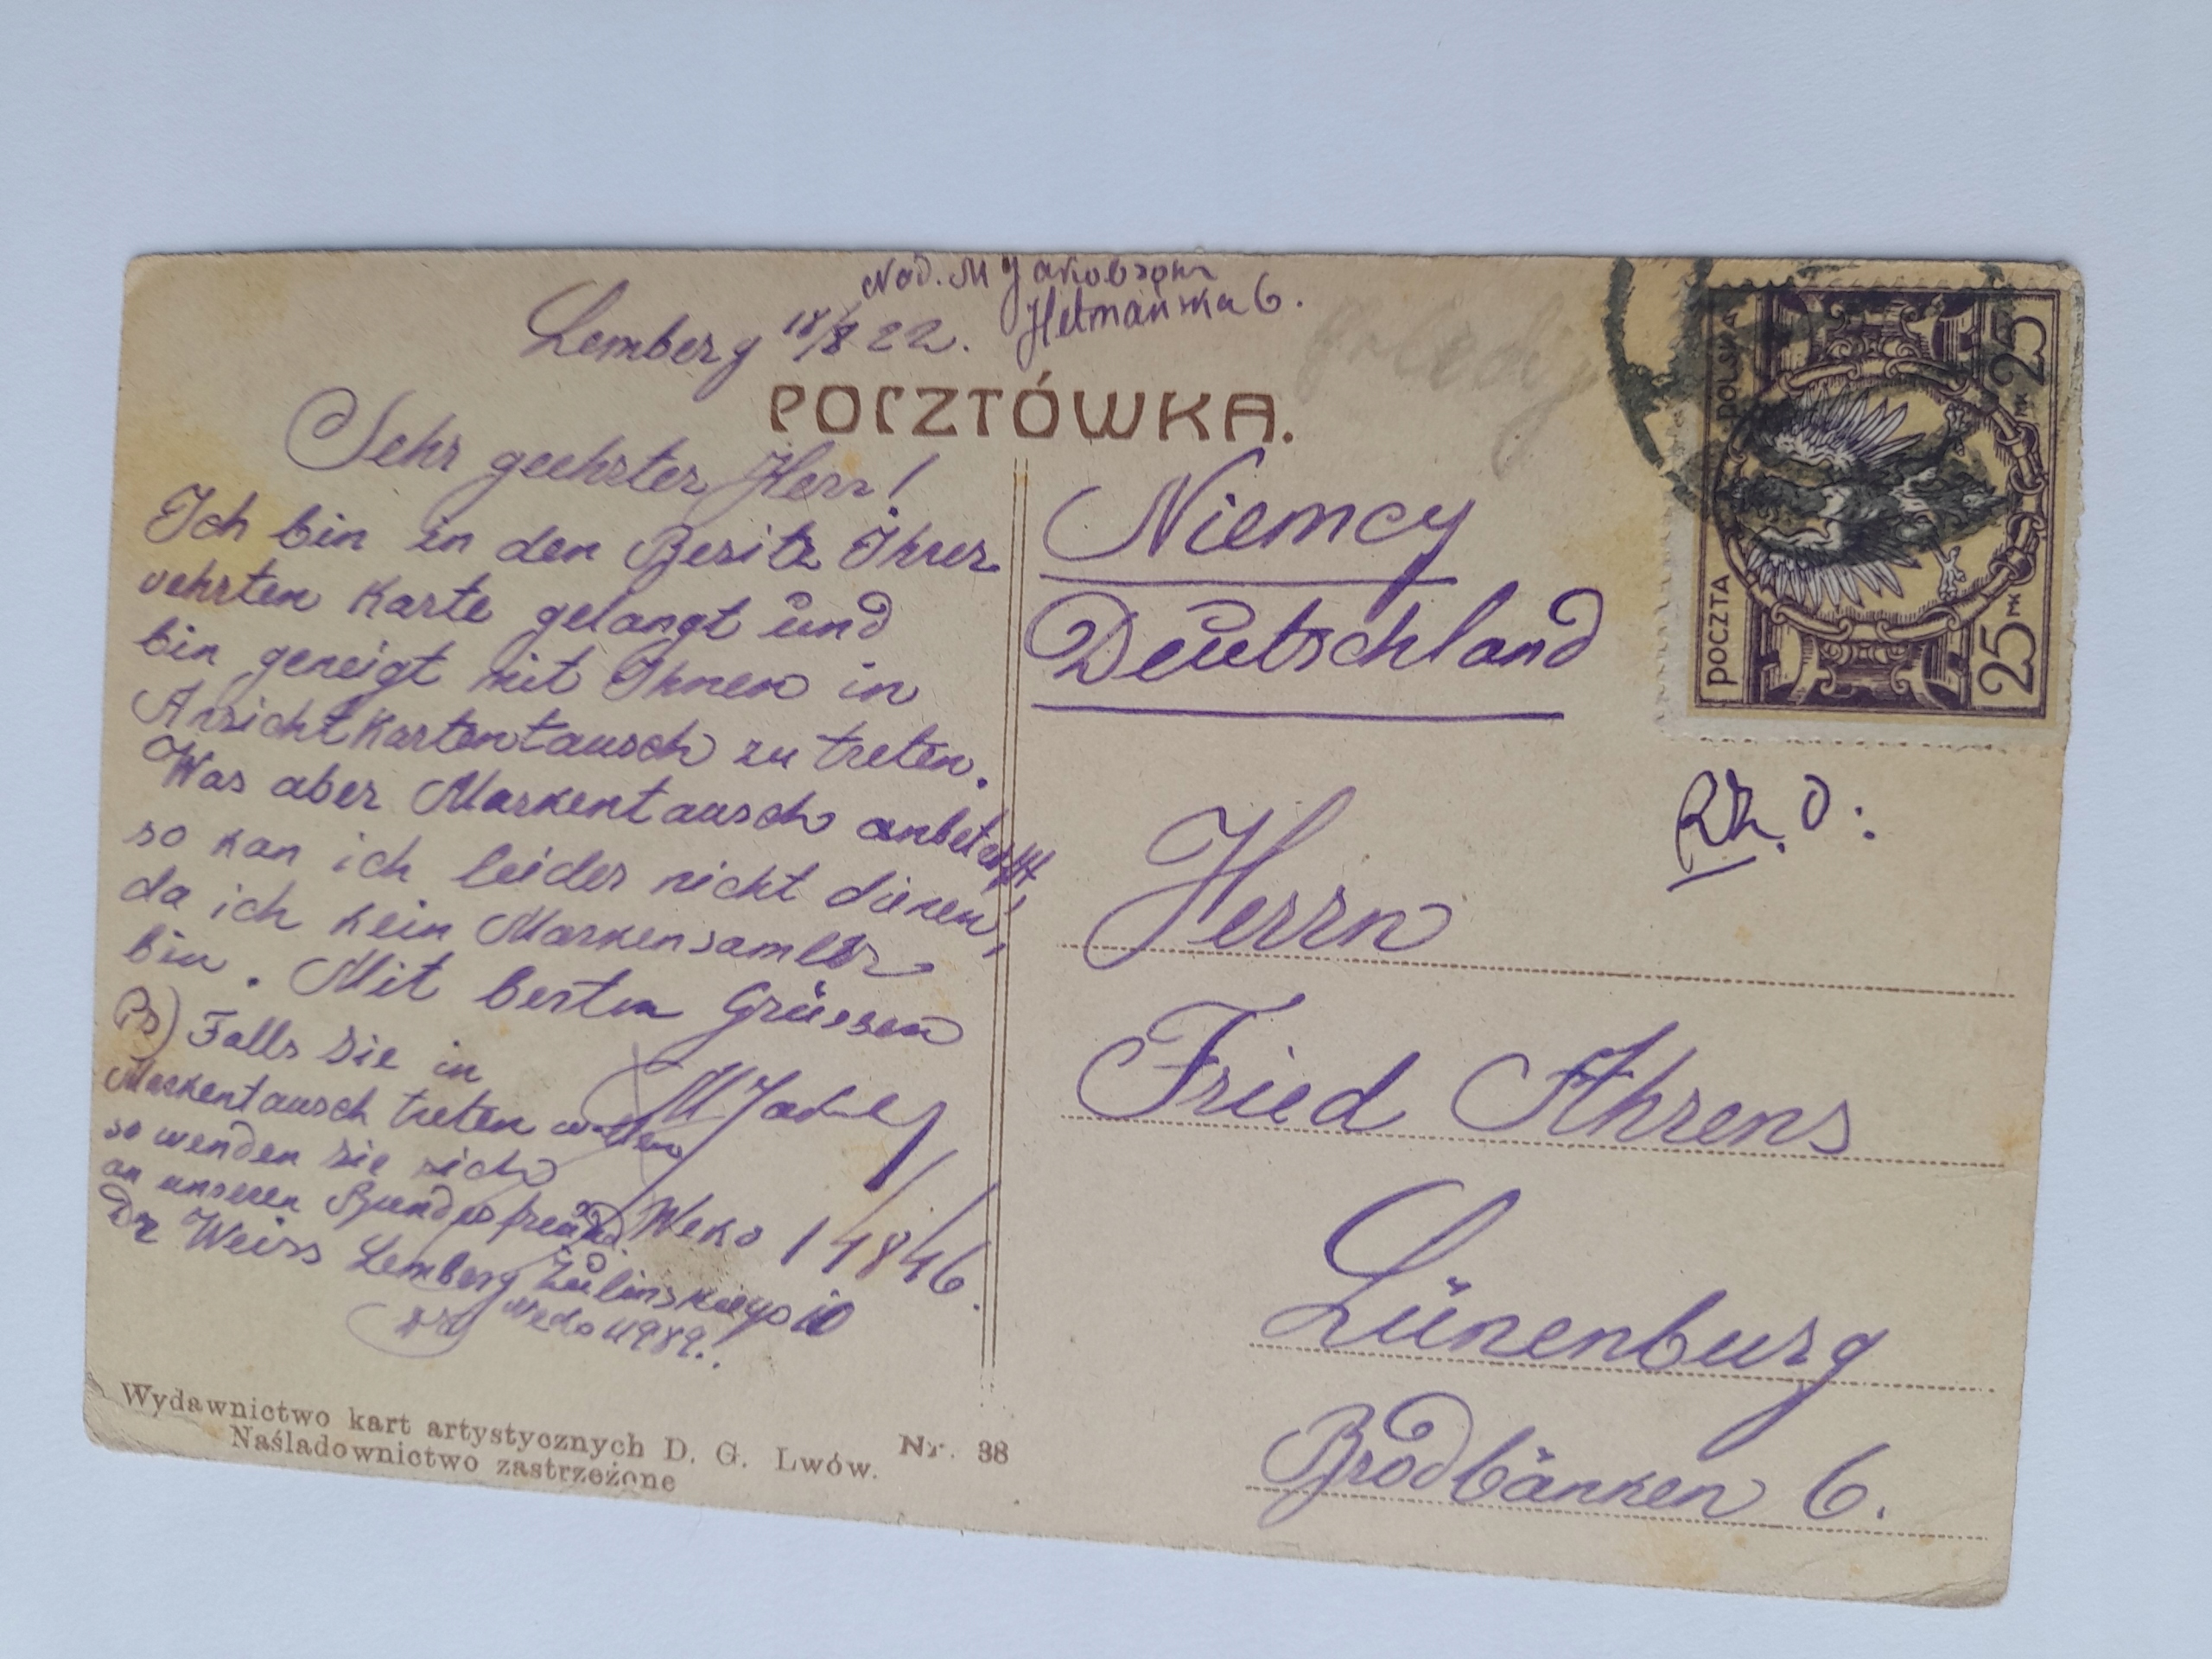 Nad. M Jakobsohn
Hetmańska 6.
Lemberg 18/8 22.
POCZTÓWKA.
Sehr geehrter Herr!
Ich bin in den Besitz Ihrer
vehrten Karte gelangt und
bin geneigt mit Ihnen in
Ansichtkartentausch zu treten.
Was aber Markentausch anbetrifft,
so kan ich leider nicht dienen,
da ich kein Markensamler
bin. Mit besten Grüssen
Ps) Falls Sie in
Markentausch treten wollen
so wenden sie sich
an unseren Bundesfreund
Dr Weiss Lemberg Zulinskiego 10
Weko 11989.!
Weko 14846.
Wydawnictwo kart artystycznych D. G. Lwów. Nr. 38
Naśladownictwo zastrzeżone
POCZTA POLSKA
25 MK 25 MK
Niemcy
Deutschland
Herrn
Fried Ahrens
Lünenburg
Brodbänken 6.